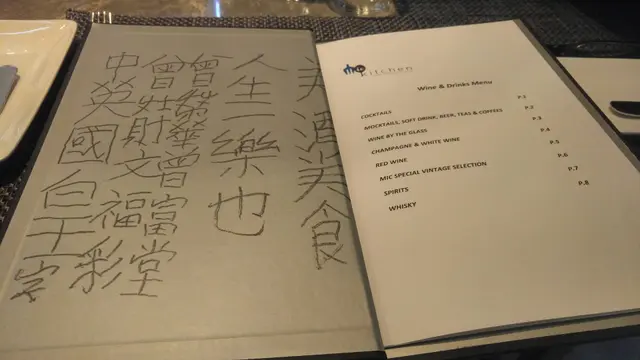 美酒美食
人生一樂也
曾榮華曾富堂
曾灶財文福彩
中英國皇
mic kitchen
Wine & Drinks Menu
COCKTAILS P.1
MOCKTAILS, SOFT DRINK, BEER, TEAS & COFFEES P.2
WINE BY THE GLASS P.3
CHAMPAGNE & WHITE WINE P.4
RED WINE P.5
MIC SPECIAL VINTAGE SELECTION P.6
SPIRITS P.7
WHISKY P.8